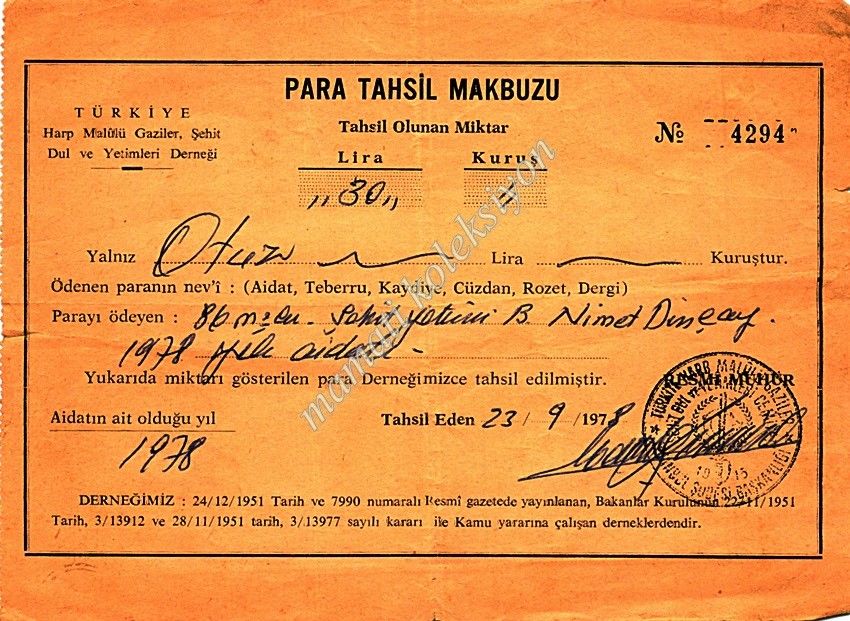 PARA TAHSİL MAKBUZU
TÜRKİYE
Harp Malûlü Gaziler, Şehit
Dul ve Yetimleri Derneği
Tahsil Olunan Miktar
Lira Kuruş
„30„ =
No 4294
Yalnız Otuz Lira Kuruştur.
Ödenen paranın nev'i : (Aidat, Teberru, Kaydiye, Cüzdan, Rozet, Dergi)
Parayı ödeyen : 86 Şehit Yetimi B. Nimet Dinçay.
1978 Yılı aidatı
Yukarıda miktarı gösterilen para Derneğimizce tahsil edilmiştir.
RESMÎ MÜHÜR
Aidatın ait olduğu yıl
Tahsil Eden 23/9/1978
1978
DERNEĞİMİZ : 24/12/1951 Tarih ve 7990 numaralı Resmî gazetede yayınlanan, Bakanlar Kurulunun 22/11/1951
Tarih, 3/13912 ve 28/11/1951 tarih, 3/13977 sayılı kararı ile Kamu yararına çalışan derneklerdendir.
mamati koleksiyon